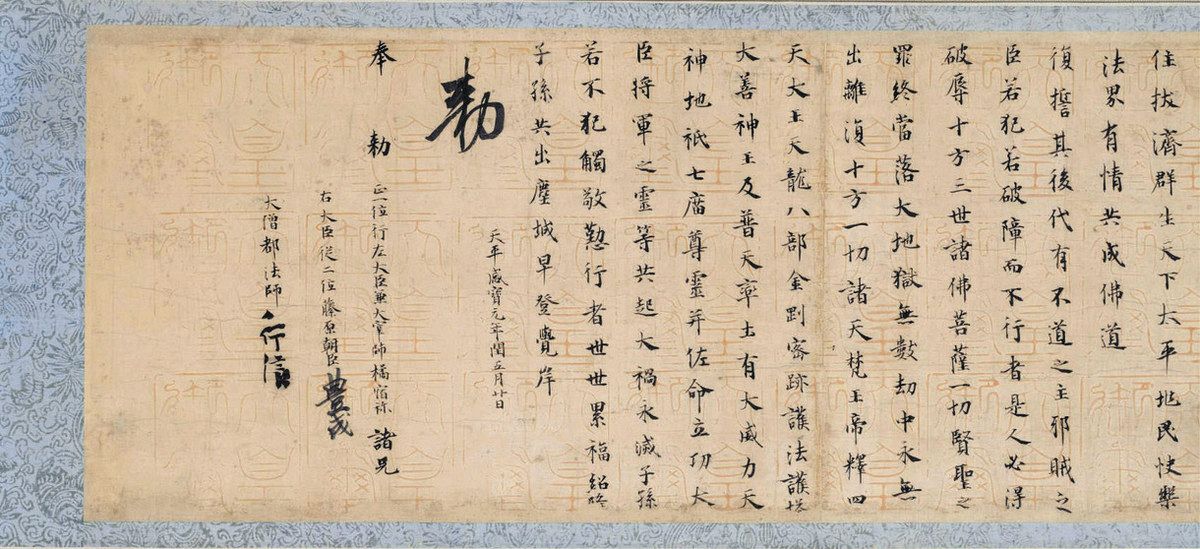 住拔濟群生天下太平地民快樂
法界有情共成佛道
復誓其後代有不道之主邪賊之
臣若犯若破障而不行者是人必得
破辱十方三世諸佛菩薩一切賢聖之
罪終當落大地獄無數劫中永無
出離復十方一切諸天梵王帝釋四
天大王天龍八部金剛密跡護法護塔
大善神王及普天率土有大威力天
神地祇七廟尊靈并佐命立功大
臣將軍之靈等共起大禍永滅子孫
若不犯觸敬懃行者世世累福紹終
子孫共出塵城早登覺岸
天平感寶元年閏五月廿日
勅
奉 勅 正一位行左大臣兼大宰帥橘宿祢諸兄
右大臣從二位藤原朝臣豊成
大僧都法師行信